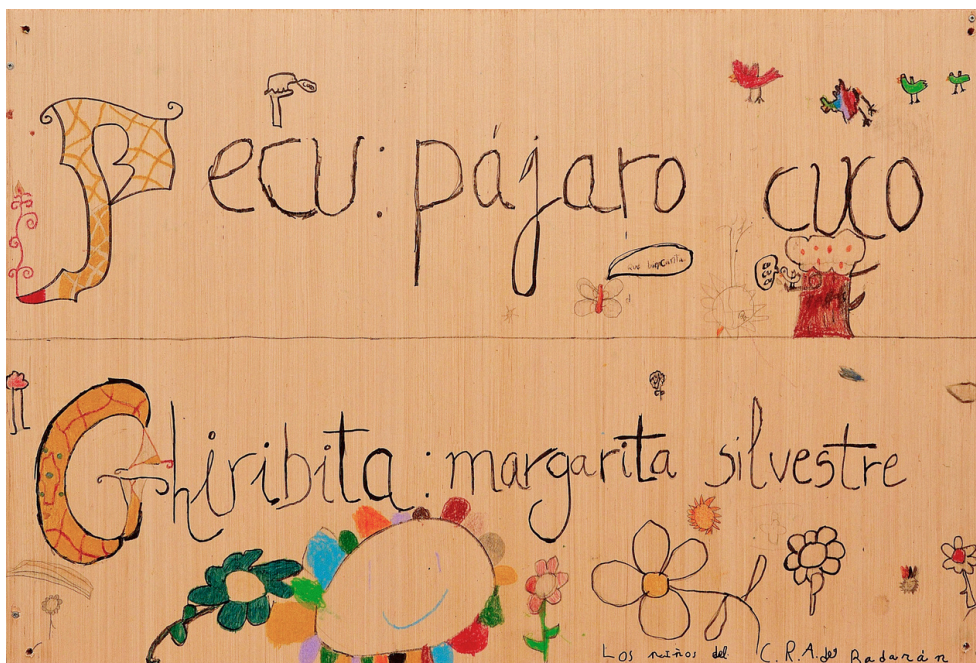 Pecu: pájaro cuco
que bien canta
cu cu cu
Chiribita: margarita silvestre
Los niños del C.R.A. de Badarán